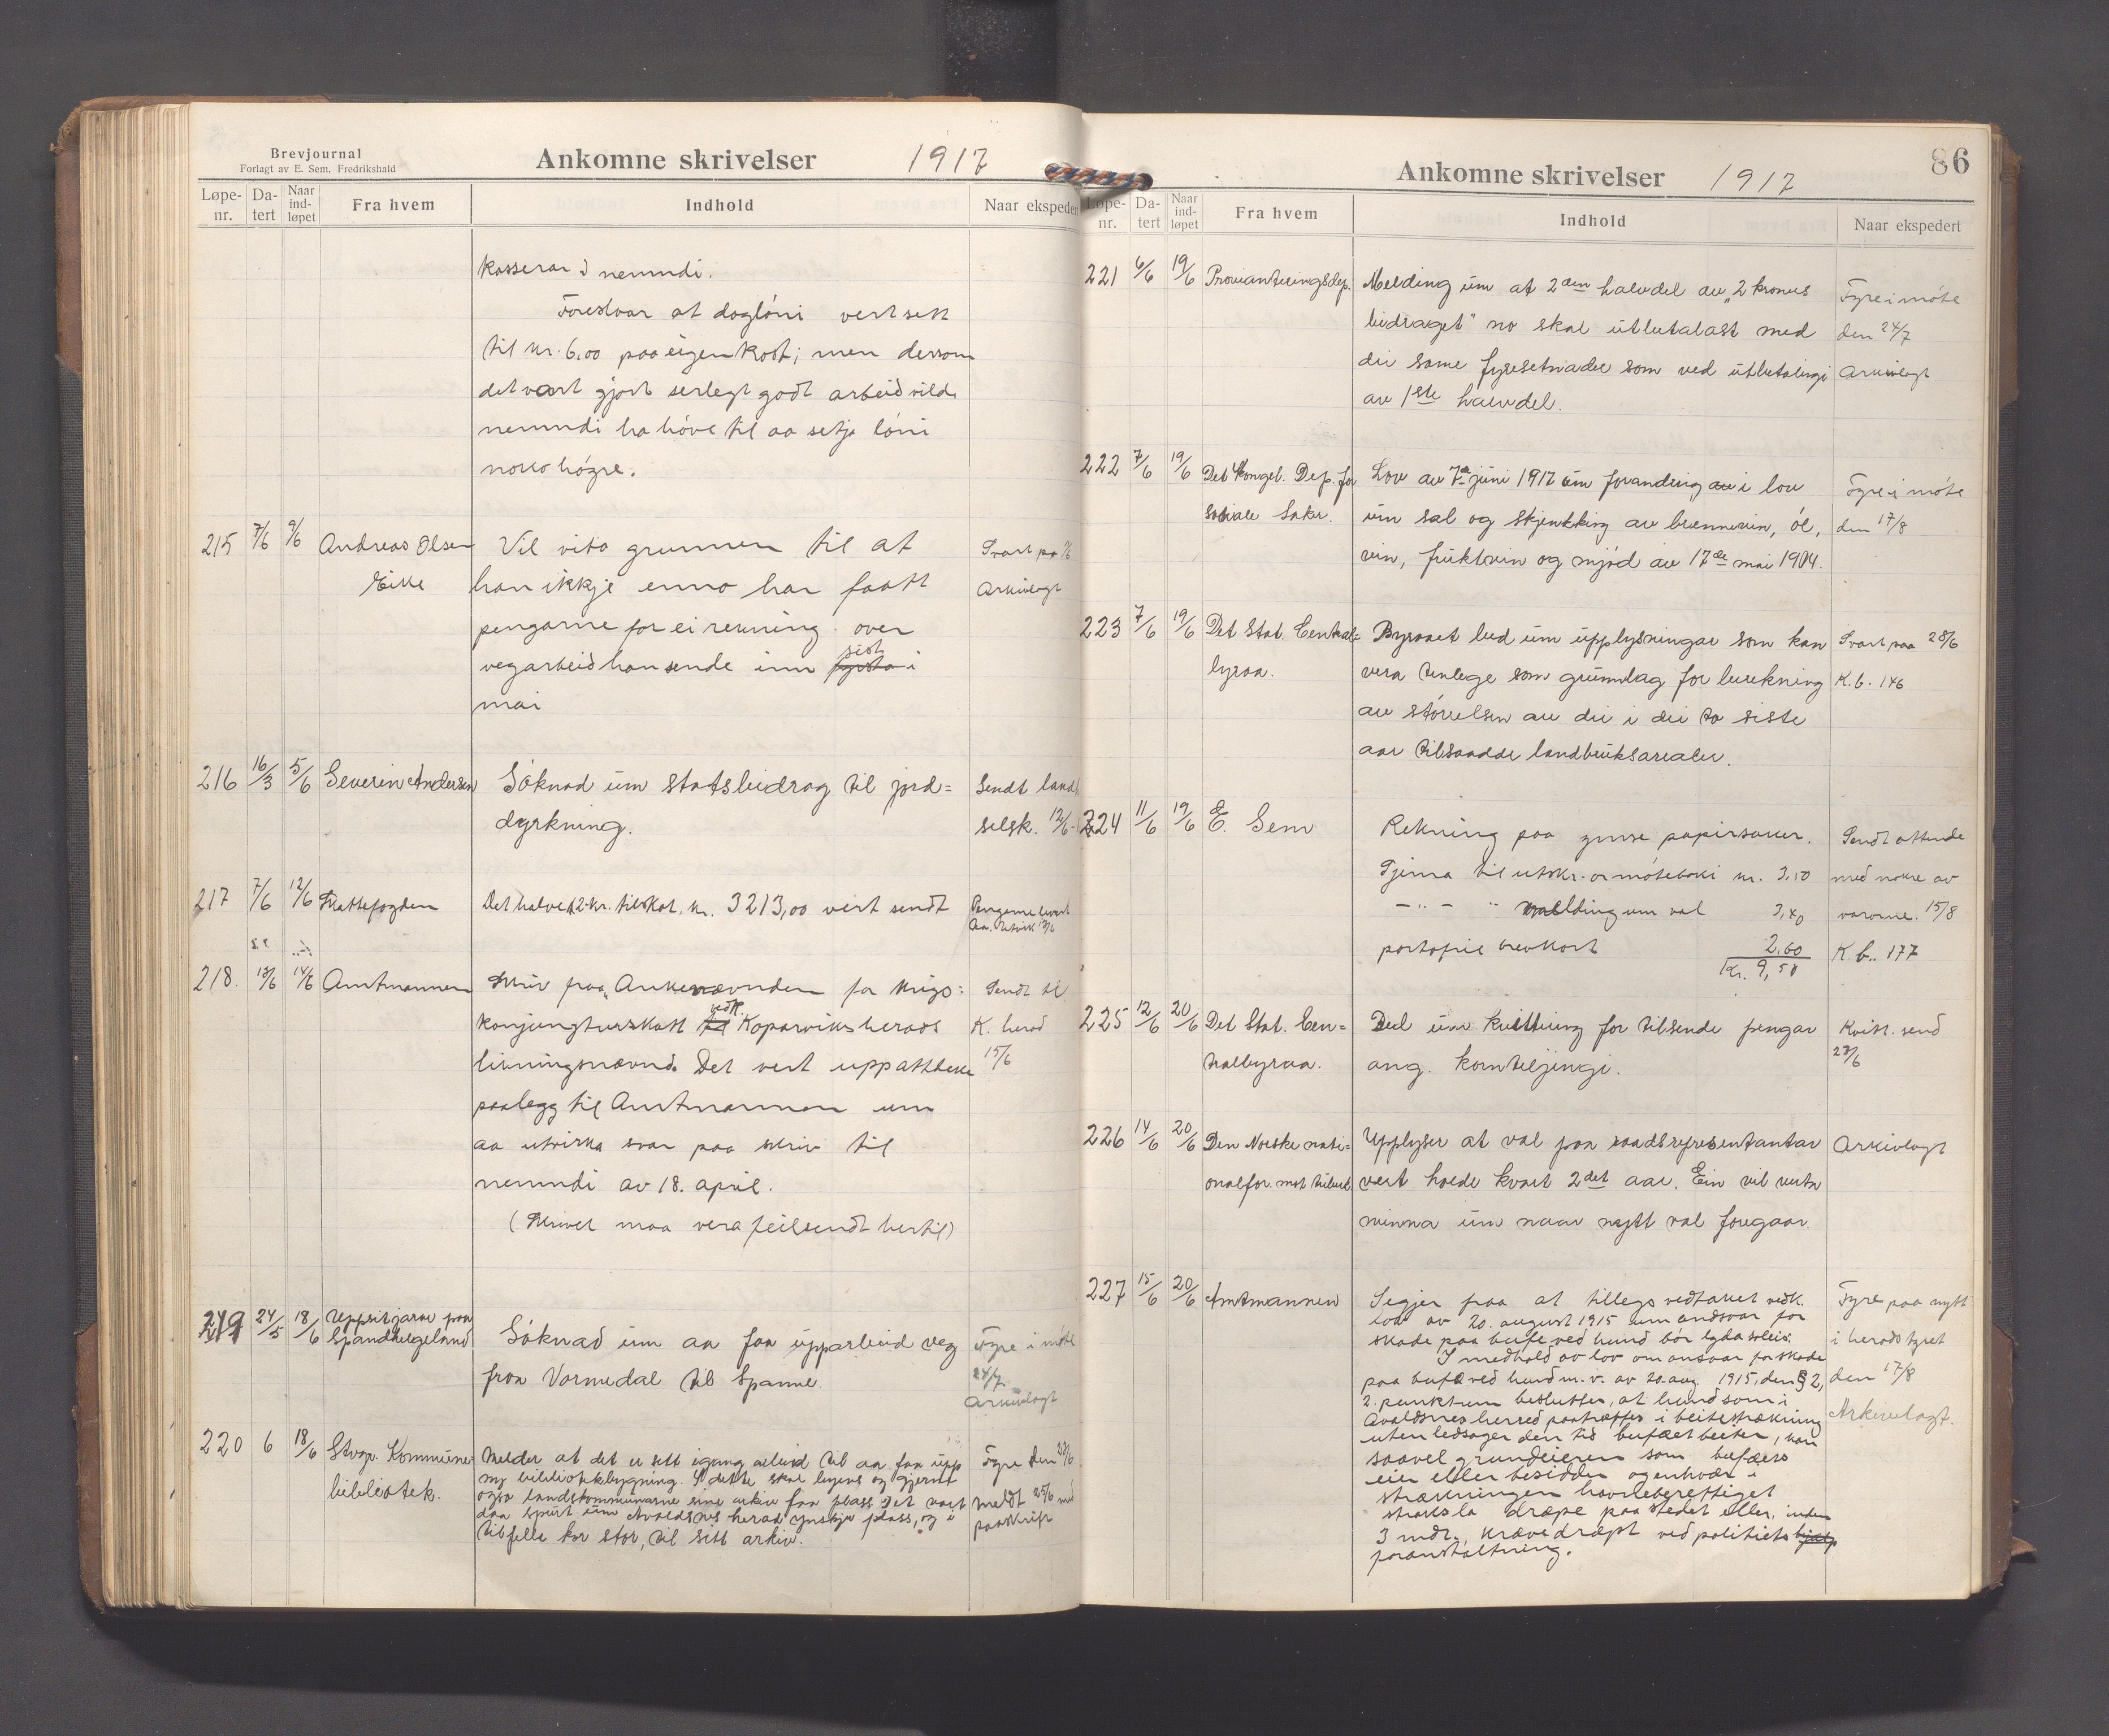 Brevjournal
Forlagt av E. Sem, Fredrikshald
Ankomne skrivelser 1917
Løpe-nr. Da-tert Naar ind-løpet Fra hvem Indhold Naar ekspedert
kasserar i nemndi.
Foreslaar at dagløni vert sett
til kr. 6,00 paa eigen kost; men dersom
det vart gjort serlegt godt arbeid vilde
nemndi ha høve til aa setje løni
noko høgre.
215 7/6 9/6 Andreas Olsen Vil vita grunnen til at Svart pr
Eike han ikkje enno har faatt Arkivlagt
pengarne for ei rekning over
vegarbeid han sende inn fyrsta sist i
mai
216 16/3 5/6 Severin Andersen Søknad um statsbidrag til jord= Sendt landh.
dyrkning. selsk. 12/6
217 7/6 12/6 Skattefogden Det halve 2 kr. tilskot, kr. 3213,00 vert sendt Pengerne levert
218. 13/6 14/6 Amtmannen Skriv fraa Ankenævnden for krigs= Sendt til
konjungturskatt til vedk. Kopervik herads K. herad
likningsnævnd. Det vert uppattteke 15/6
paalegg til Amtmannen um
aa utvirka svar paa skriv til
nemndi av 18. april.
(Skrivet maa vera feilsendt hertil)
219 24/5 18/6 Uppsitjarne paa
Spandhelgeland Søknad um aa faa upparbeid veg Fyre i møte
fraa Vormedal til Spanne. 24/7
Arkivlagt
220 6 18/6 Stvgr. Kommune Melder at det er sett igang arbeid til aa faa upp Fyre den 23/6
bibliotek. ny bibliotekbygning. I dette skal byens og gjerne
ogso landskommunarne sine arkiv faa plass. Det vart meldt 25/6 med
daa spurt um Avaldsnes herad ynskjer plass, og i paaskrift
tilfelle kor stor, til sitt arkiv.
Ankomne skrivelser 1917 86
Løpe-nr. Da-tert Naar ind-løpet Fra hvem Indhold Naar ekspedert
221 6/6 19/6 Provianteringsdep. Melding um at 2den halvdel av "2 krones Fyre i møte
bidraget" no skal utbetalast med den 24/7
dei same fyresetnader som ved utbetalingi Arkivlagt
av 1ste halvdel.
222 7/6 19/6 Det Kongel. Dep. for Lov av 7de juni 1917 um forandring av i lov Fyre i møte
sosiale Saker. um sal og skjenkking av brennevin, øl, den 17/8
vin, fruktvin og mjød av 17de mai 1904.
223 7/6 19/6 Det Stat. Central= Byraaet bed um upplysningar som kan Svart paa 28/6
byraa. vera tenlege som grunnlag for berekning K.b. 146
av størrelsen av dei i dei to siste
aar tilsaadde landbruksarealer.
224 11/6 19/6 E. Sem Rekning paa ymse papirsaker. Sendt attende
Tjema til utskr. or møteboki kr. 3,50 med nokre av
- " - " melding um val 3,40 vararne. 15/8
portofrie brevkort 2,60 K.b. 177
Kr. 9,50
225 12/6 20/6 Det Stat. Cen= Bed um kvittering for tilsende pengar Kvitt. send
tralbyraa. ang. kornteljingi. 23/6
226 14/6 20/6 Den Norske nati= Upplyser at val paa raadsrepresentantar Arkivlagt
onalfor. mot tuberk. vert halde kvart 2det aar. Ein vil verta
minna um naar nytt val foregaar.
227 15/6 20/6 Amtmannen Segjer fraa at tillegs vedtaket vedk. Fyre paa nytt
lov av 20. august 1915 um andsvar for
skade paa bufe ved hund bør lyda soleis: i heradstyret
I medhold av lov om ansvar for skade
paa bufæ ved hund m. v. av 20. aug. 1915, dens § 2, den 17/8
2. punktum besluttes, at hund som i
Avaldsnes herred paatræffes i beitestrækning Arkivlagt.
uten ledsager den tid bufæet beiter, kan
saavel grundeieren som bufæets
eier eller besidder og enhver i
strækningen havneberettiget
straks la dræpe paa stedet eller, inden
3 mdr. kræve dræpt ved politiets hjælp
foranstaltning.